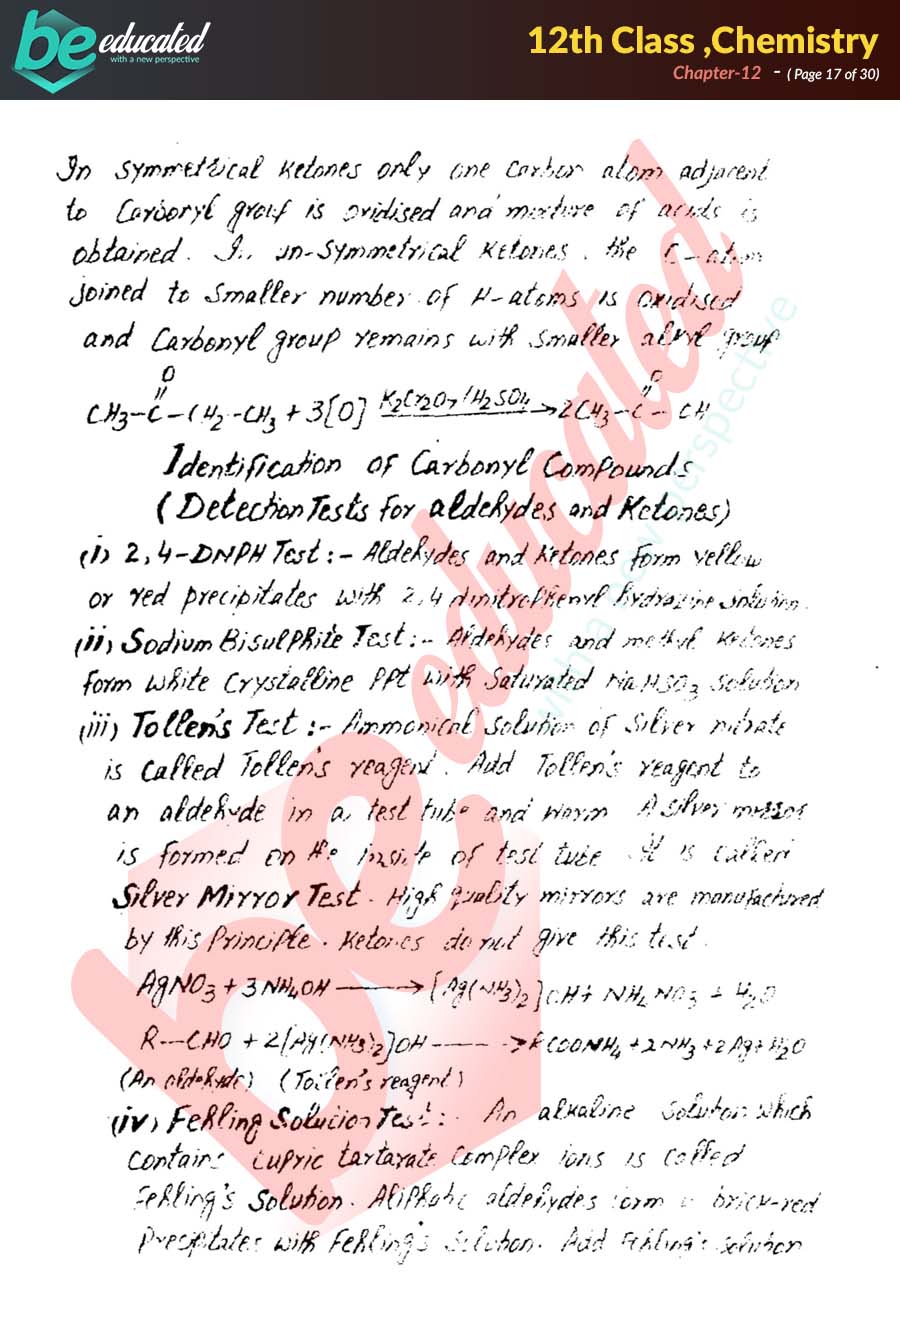 be educated
with a new perspective
12th Class ,Chemistry
Chapter-12 - ( Page 17 of 30)
In Symmetrical Ketones only one Carbon atom adjacent
to Carbonyl group is oxidised and mixture of acids is
obtained. In un-Symmetrical Ketones, the C-atom
joined to Smaller number of H-atoms is oxidised
and Carbonyl group remains with smaller alkyl group
O O
CH3-C-CH2-CH3 + 3[O] K2Cr2O7/H2SO4 → 2CH3-C-OH
Identification of Carbonyl Compounds
(Detection Tests for aldehydes and Ketones)
(i) 2,4-DNPH Test:- Aldehydes and Ketones form yellow
or red precipitates with 2,4 dinitrophenyl hydrazine solution.
(ii) Sodium Bisulphite Test:- Aldehydes and methyl Ketones
form white Crystalline PPt with Saturated NaHSO3 Solution
(iii) Tollen's Test :- Ammonical Solution of Silver nitrate
is called Tollen's reagent. Add Tollen's reagent to
an aldehyde in a test tube and warm A silver mirror
is formed on the inside of test tube. It is called
Silver Mirror Test. High quality mirrors are manufactured
by this Principle. Ketones do not give this test.
AgNO3 + 3NH4OH → [Ag(NH3)2]OH + NH4NO3 + H2O
R-CHO + 2[Ag(NH3)2]OH → RCOONH4 + 2NH3 + 2Ag + H2O
(An aldehyde) (Tollen's reagent)
(iv) Fehling Solution Test:- An alkaline solution which
Contains Cupric tartarate Complex ions is called
Fehling's Solution. Aliphatic aldehydes form a brick-red
Precipitates with Fehling's Solution. Add Fehling's solution
be educated
with a new perspective